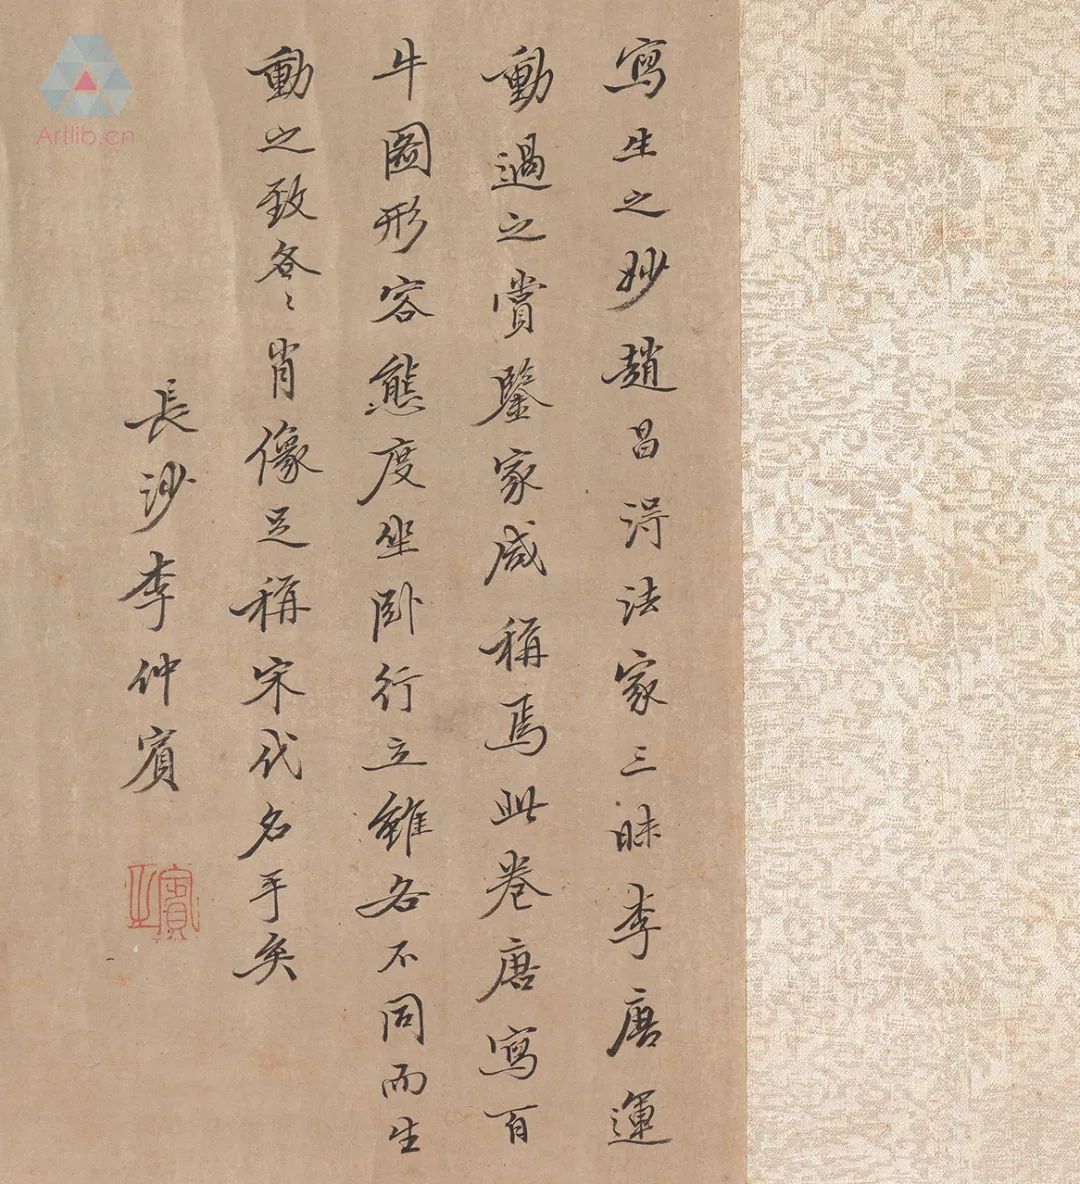 寫生之妙趙昌得法家三昧李唐運
動過之賞鑒家咸稱焉此卷唐寫百
牛圖形容態度坐臥行立雖各不同而生
動之致各〻肖像足稱宋代名手矣
長沙李仲賓
Artlib.cn